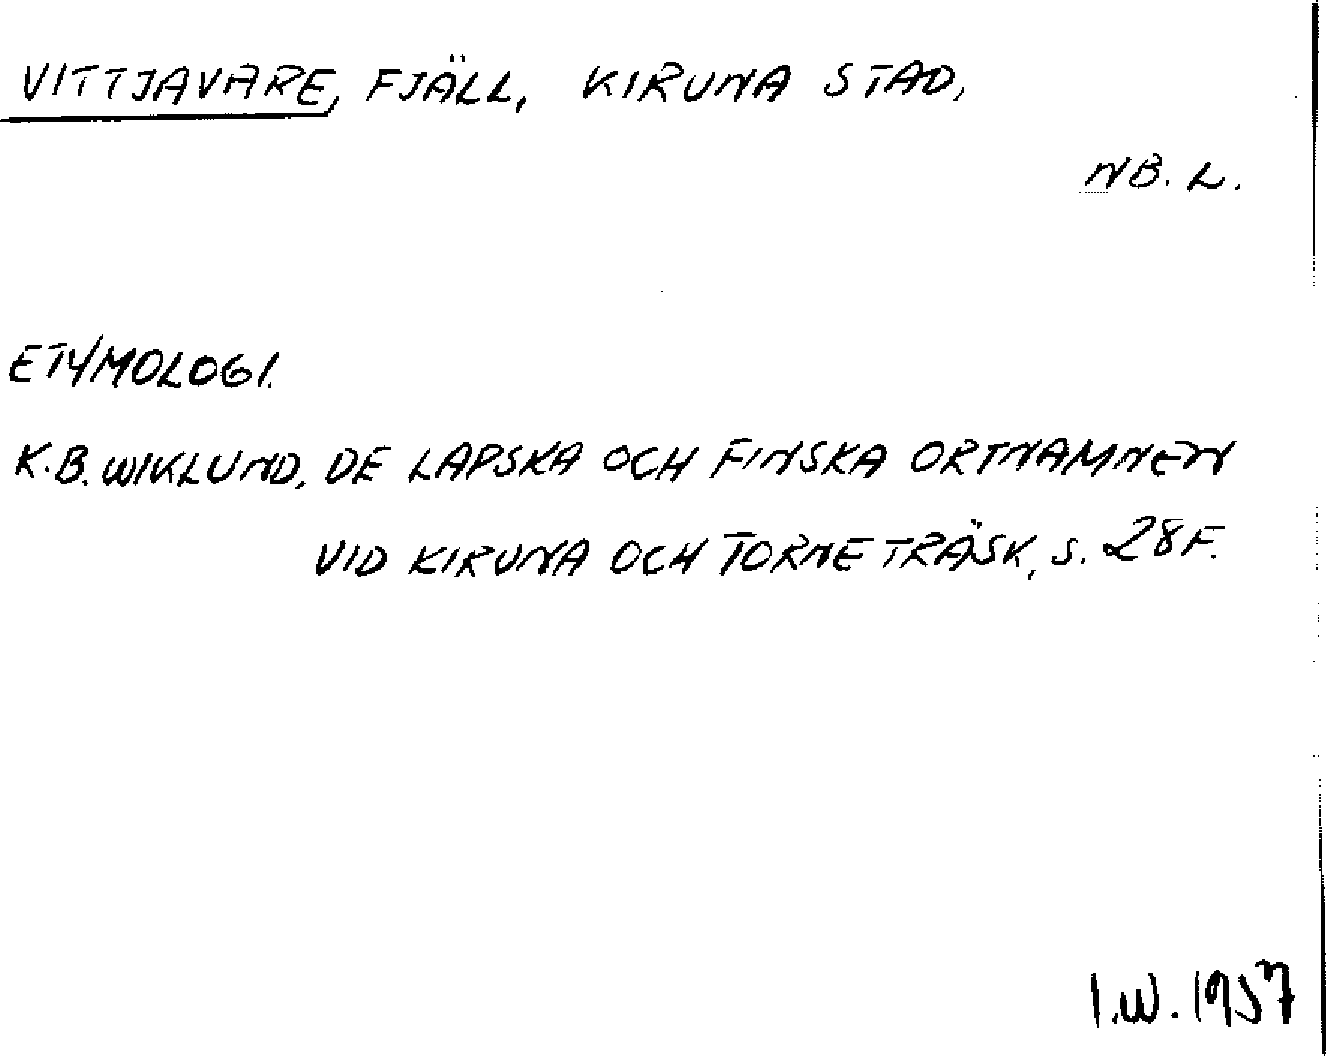 VITTJAVARE, FJÄLL, KIRUNA STAD,
NB. L.
ETYMOLOGI.
K.B. WIKLUND, DE LAPSKA OCH FINSKA ORTNAMNEN
VID KIRUNA OCH TORNETRÄSK, S. 28F.
I.W. 1957